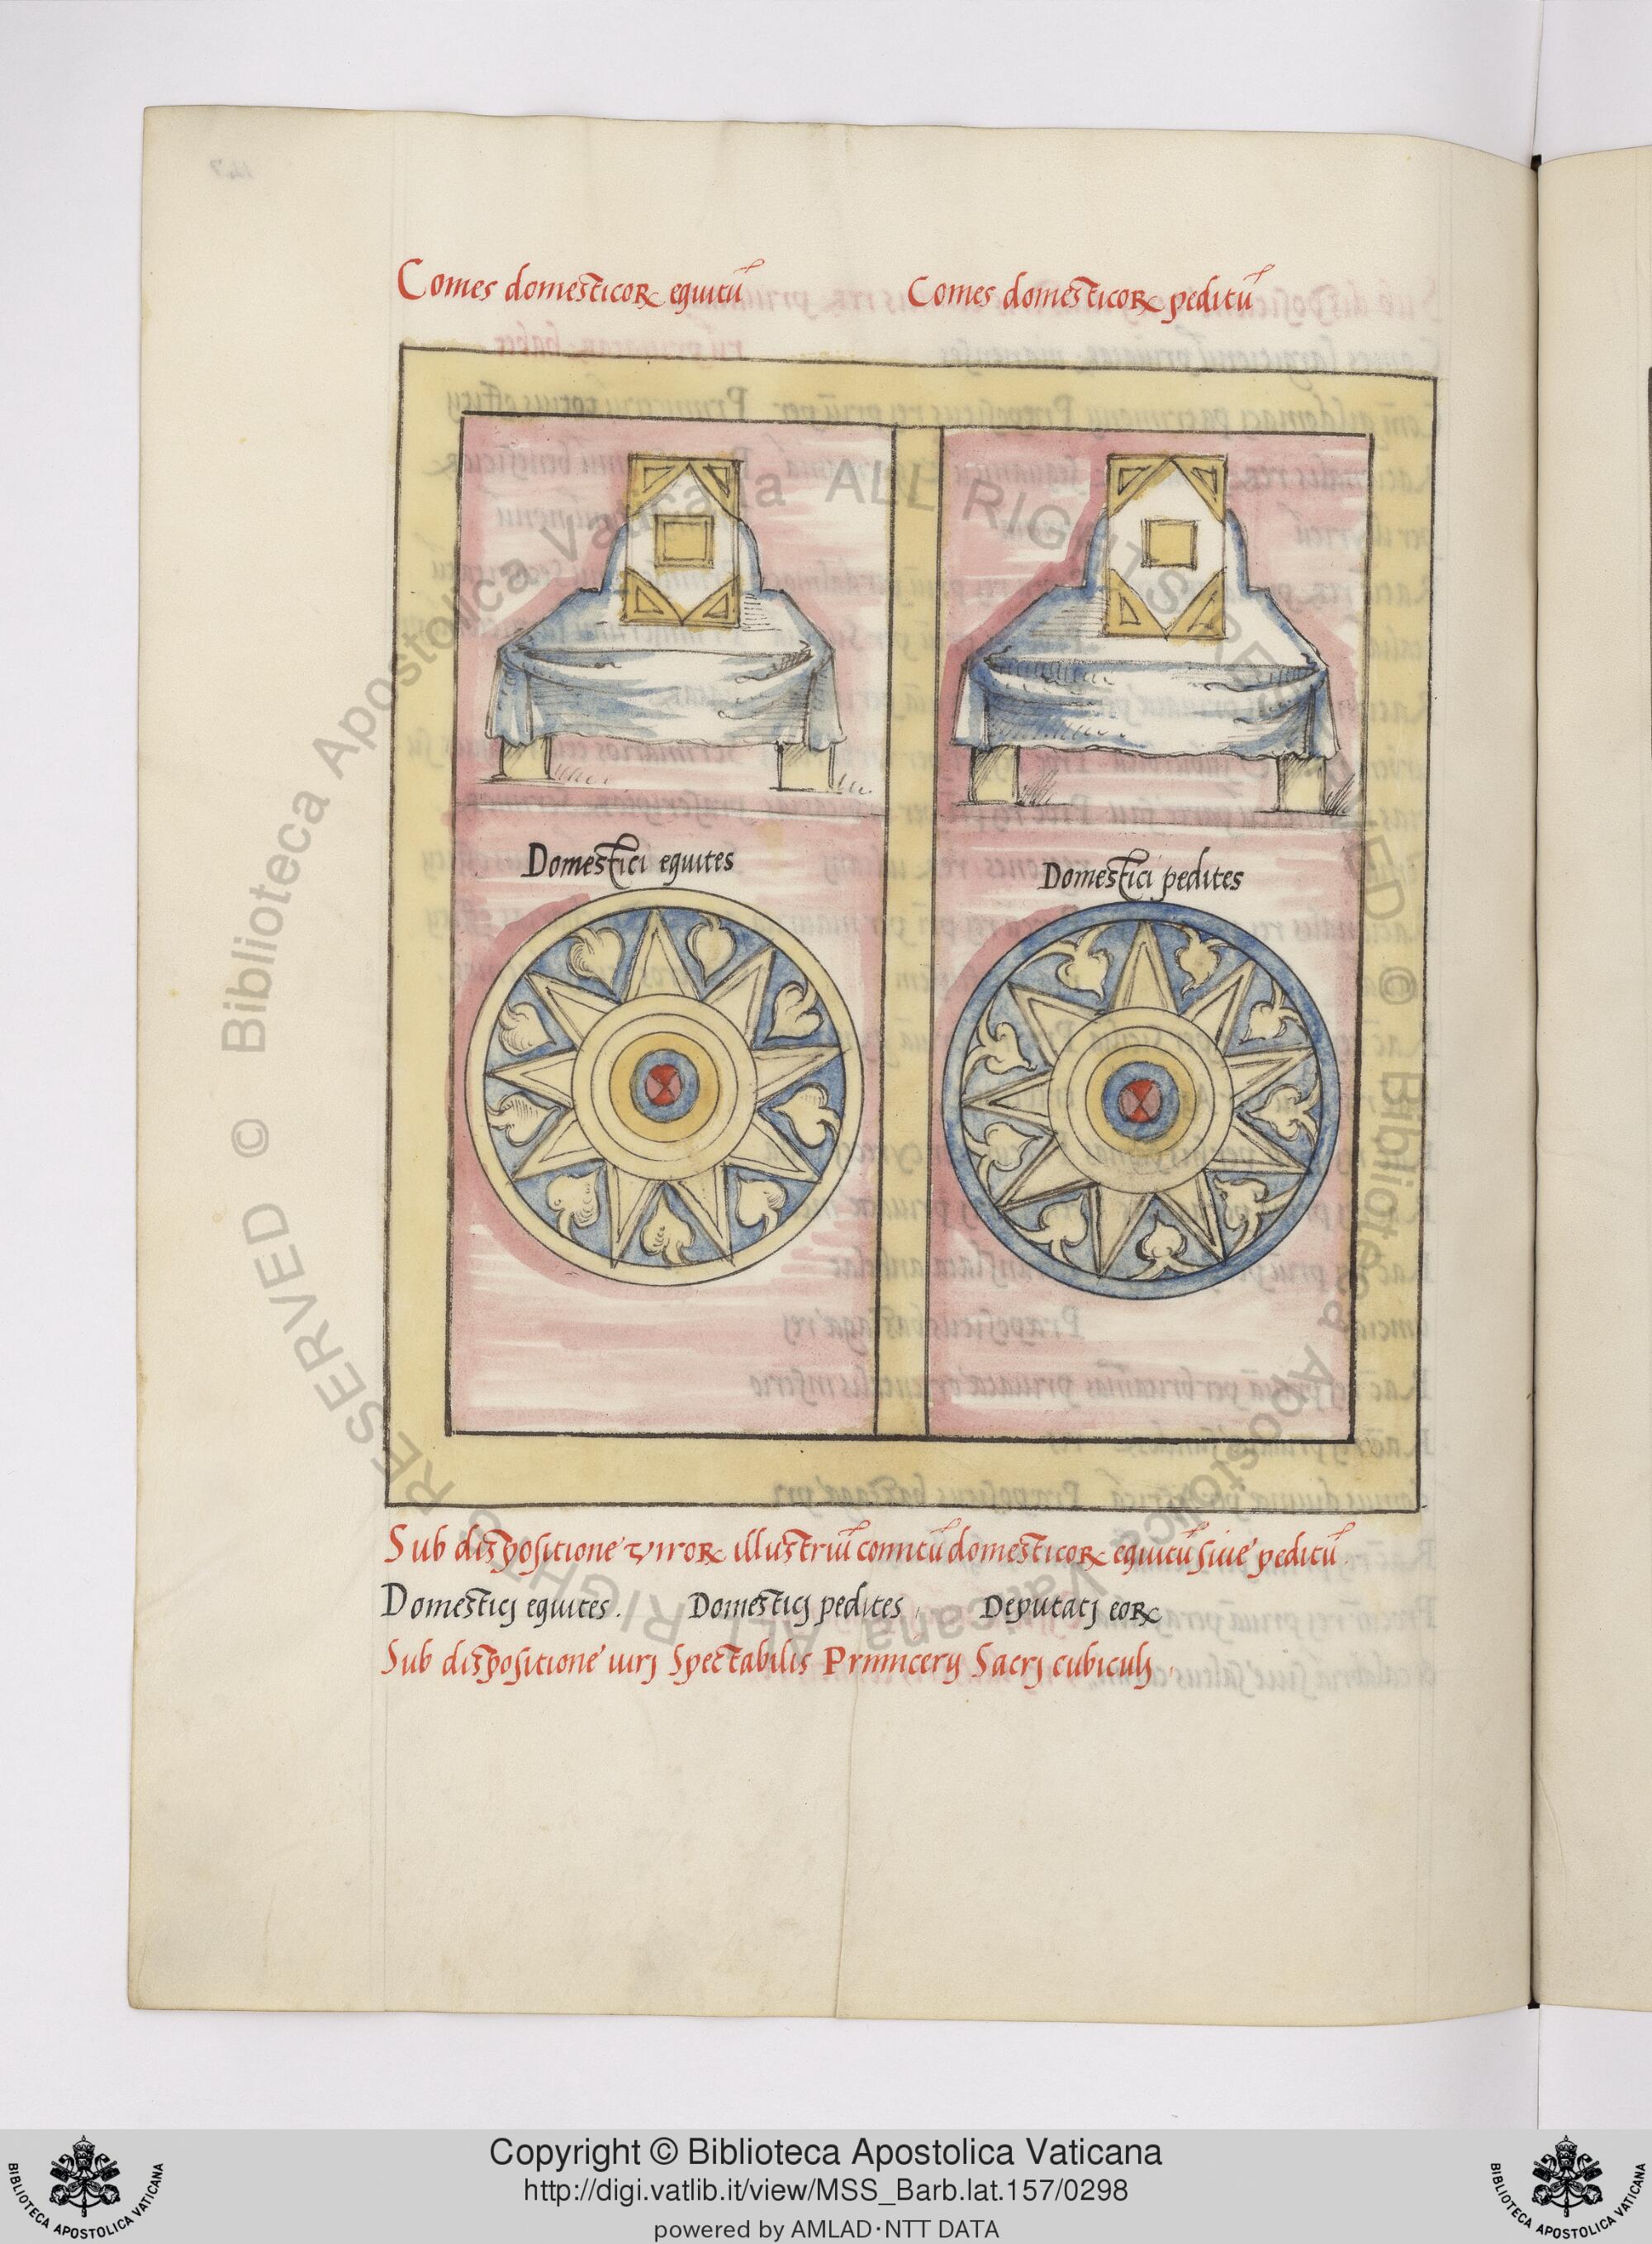 Comes domesticoꝝ equitū Comes domesticoꝝ peditū
Domestici equites Domestici pedites
Sub dispositione viroꝝ illustriū comitū domesticoꝝ equitū siue peditū.
Domesticj equites. Domesticj pedites, Deputatj eoꝝ
Sub dispositione uirj Spectabilis Primicerij Sacrj cubiculj,
© Biblioteca Apostolica Vaticana ALL RIGHTS RESERVED © Biblioteca Apostolica Vaticana ALL RIGHTS RESERVED
Copyright © Biblioteca Apostolica Vaticana
http://digi.vatlib.it/view/MSS_Barb.lat.157/0298
powered by AMLAD·NTT DATA
BIBLIOTECA APOSTOLICA VATICANA
BIBLIOTECA APOSTOLICA VATICANA